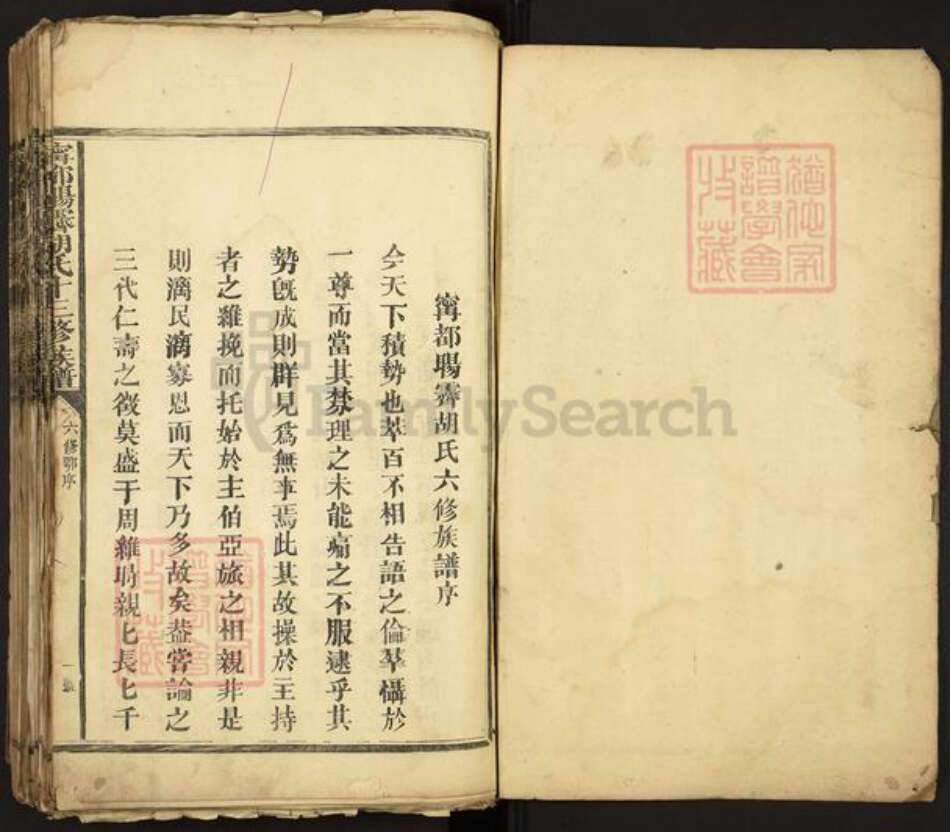 寗都賜霽胡氏六修族譜序
今天下積勢也萃百不相告語之倫羣懾於
一尊而當其禁理之未能痛之不服逮乎其
勢旣成則群見爲無事焉此其故操於主持
者之維挽而托始於主伯亞旅之相親非是
則漓民漓寡恩而天下乃多故矣葢嘗論之
三代仁壽之徵莫盛于周維時親匕長匕千
胡氏十三修族譜
六修鄂序
一
FamilySearch
譜學會
收藏
譜學會
收藏